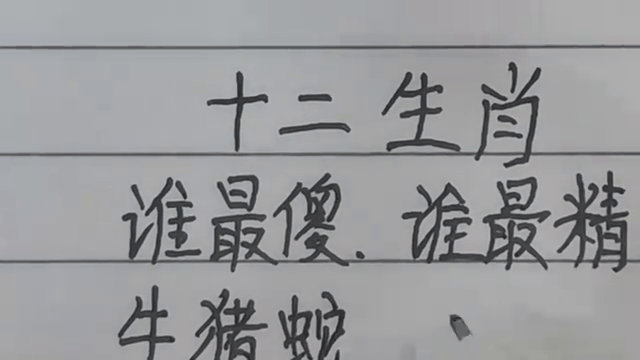 十二生肖
谁最傻.谁最精
牛猪蛇